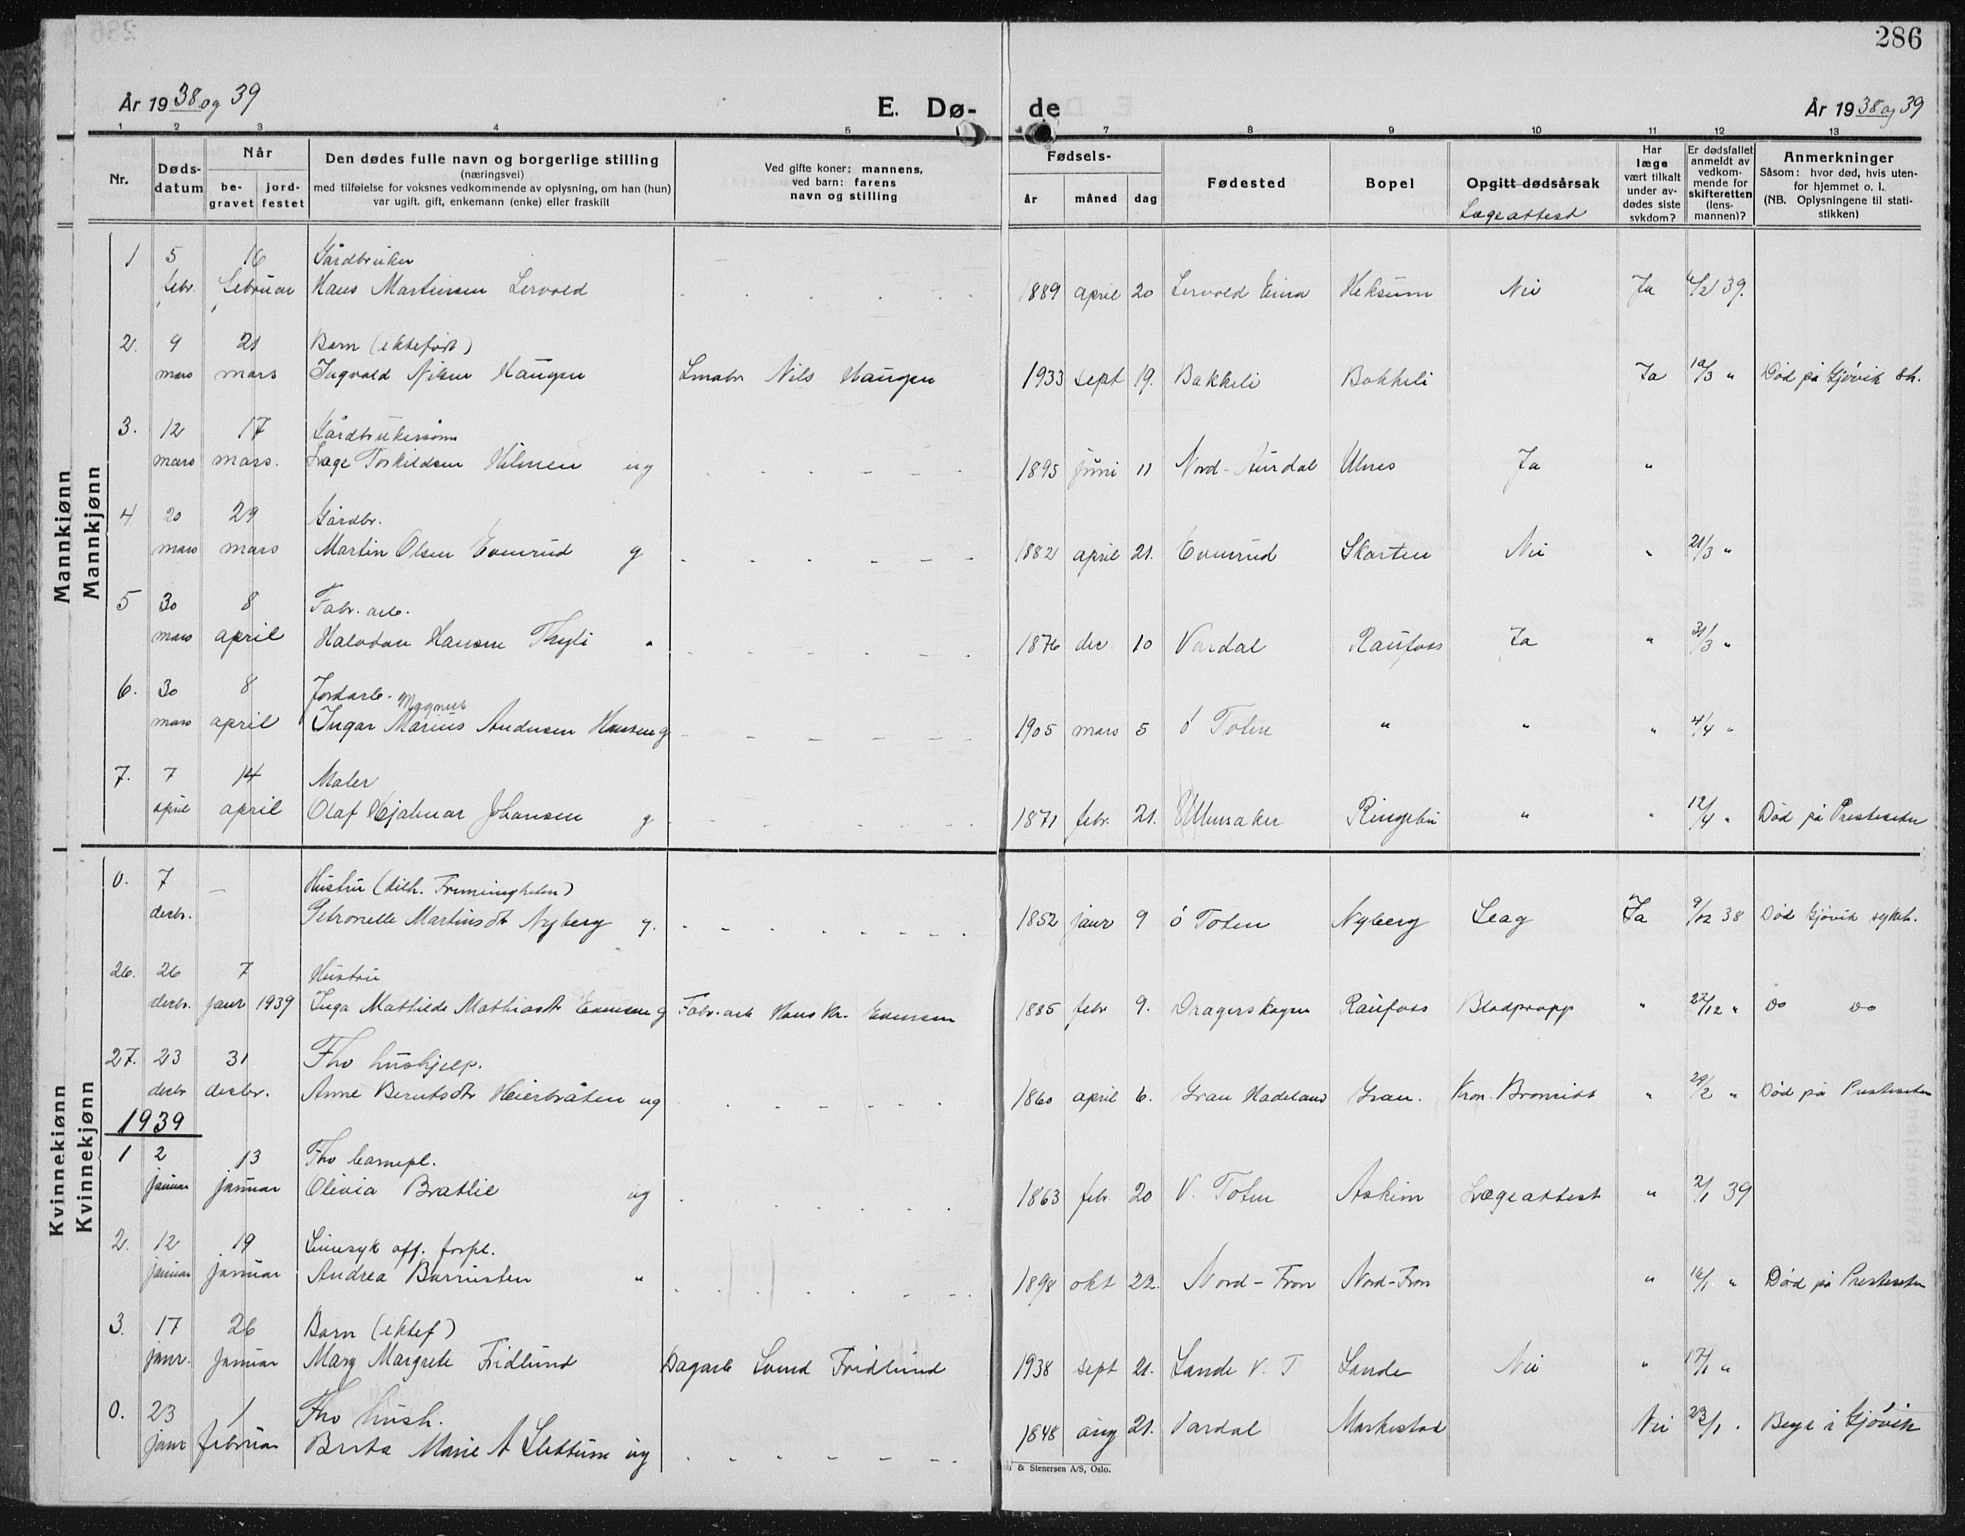 286
År 1938 og 39
E. Dø-
de
År 1938 og 39
1 2 3 4 5 7 8 9 10 11 12 13
Nr.
Døds-
datum
Når
be-
gravet
jord-
festet
Den dødes fulle navn og borgerlige stilling
(næringsvei)
med tilføielse for voksnes vedkommende av oplysning, om han (hun)
var ugift, gift, enkemann (enke) eller fraskilt
Ved gifte koner: mannens,
ved barn: farens
navn og stilling
Fødsels-
år måned dag
Fødested
Bopel
Opgitt dødsårsak
Lægeattest
Har
læge
vært tilkalt
under av-
dødes siste
sykdom?
Er dødsfallet
anmeldt av
vedkom-
mende for
skifteretten
(lens-
mannen)?
Anmerkninger
Såsom: hvor død, hvis uten-
for hjemmet o. l.
(NB. Oplysningene til stati-
stikken)
Mannkjønn
Mannkjønn
1 5 16 Gårdbruker
febr. februar Hans Martinsen Lervold 1889 april 20 Lervold Eina Heksum Nei Ja 6/2 39.
2. 9 21 Barn (ektefødt)
mars mars Ingvald Nilsen Haugen Småbr Nils Haugen 1933 sept 19. Bakkeli Bakkeli Ja 10/3 " Død på Gjøvik sh.
3. 12 17 Gårdbrukersønn
mars mars. Lage Torkildsen Hilmen ug 1895 juni 11 Nord-Aurdal Ulnes Ja "
4 20 29 Gårdbr.
mars mars Martin Olsen Evenrud g 1882 april 21. Evenrud Skarten Nei " 21/3 "
5 30 8 Fabr. arb.
mars april Halvdan Hansen Thyli " 1876 dec. 10 Vardal Raufoss Ja " 31/3 "
6. 30 8 Jordarb. Magnus
mars april Ingar Marius Andersen Hansen g 1905 mars 5 ø Toten " " " 4/4 "
7. 7 14 Maler
april april Olaf Hjalmar Johansen g 1871 febr. 21. Ullensaker Ringebu " " 12/4 " Død på Presteseter
Kvinnekjønn
Kvinnekjønn
0. 7 – Hustru (dilh. Fremmigheten)
decbr. Petronelle Martinsdt Nyberg g. 1852 janr 9 ø Toten Nyberg Slag Ja 9/12 38 Død Gjøvik sykeh.
26. 26 7 Hustru
decbr. janr 1939 Inga Mathilde Mathiasdt Evensen g Fabr. arb Hans Kr. Evensen 1885 febr 9. Dragerskogen Raufoss Blodpropp " 22/12 " Do Do
27. 23 31 Fhv hushjelp.
decbr decbr. Anne Berntsdt Heierbråten ug 1860 april 6. Gran Hadeland Gran. Kron. Bronkitt " 29/2 " Død på Presteseter
1939
1 2 13 Fhv barnepl.
januar januar Olivia Bratlie ug 1863 febr 20 V. Toten Askim Lægeattest " 2/1 39
2. 12 19 Sinnsyk off. forpl.
januar januar Andrea Barristen " 1898 okt 22 Nord-Fron Nord-Fron " 16/1 " Død på Presteseter
3. 17 26 Barn (ektef)
janr. januar Mary Margrete Fridlund Dagarb Svend Fridlund 1938 sept 21. Sande V. T Sande Nei " 17/1 "
0. 23 1 Fhv hush.
janr februar Berta Marie A Slettum ug 1848 aug 21. Vardal Markestad Nei 23/1 . Begr i Gjøvik
& Stenersen A/S, Oslo.